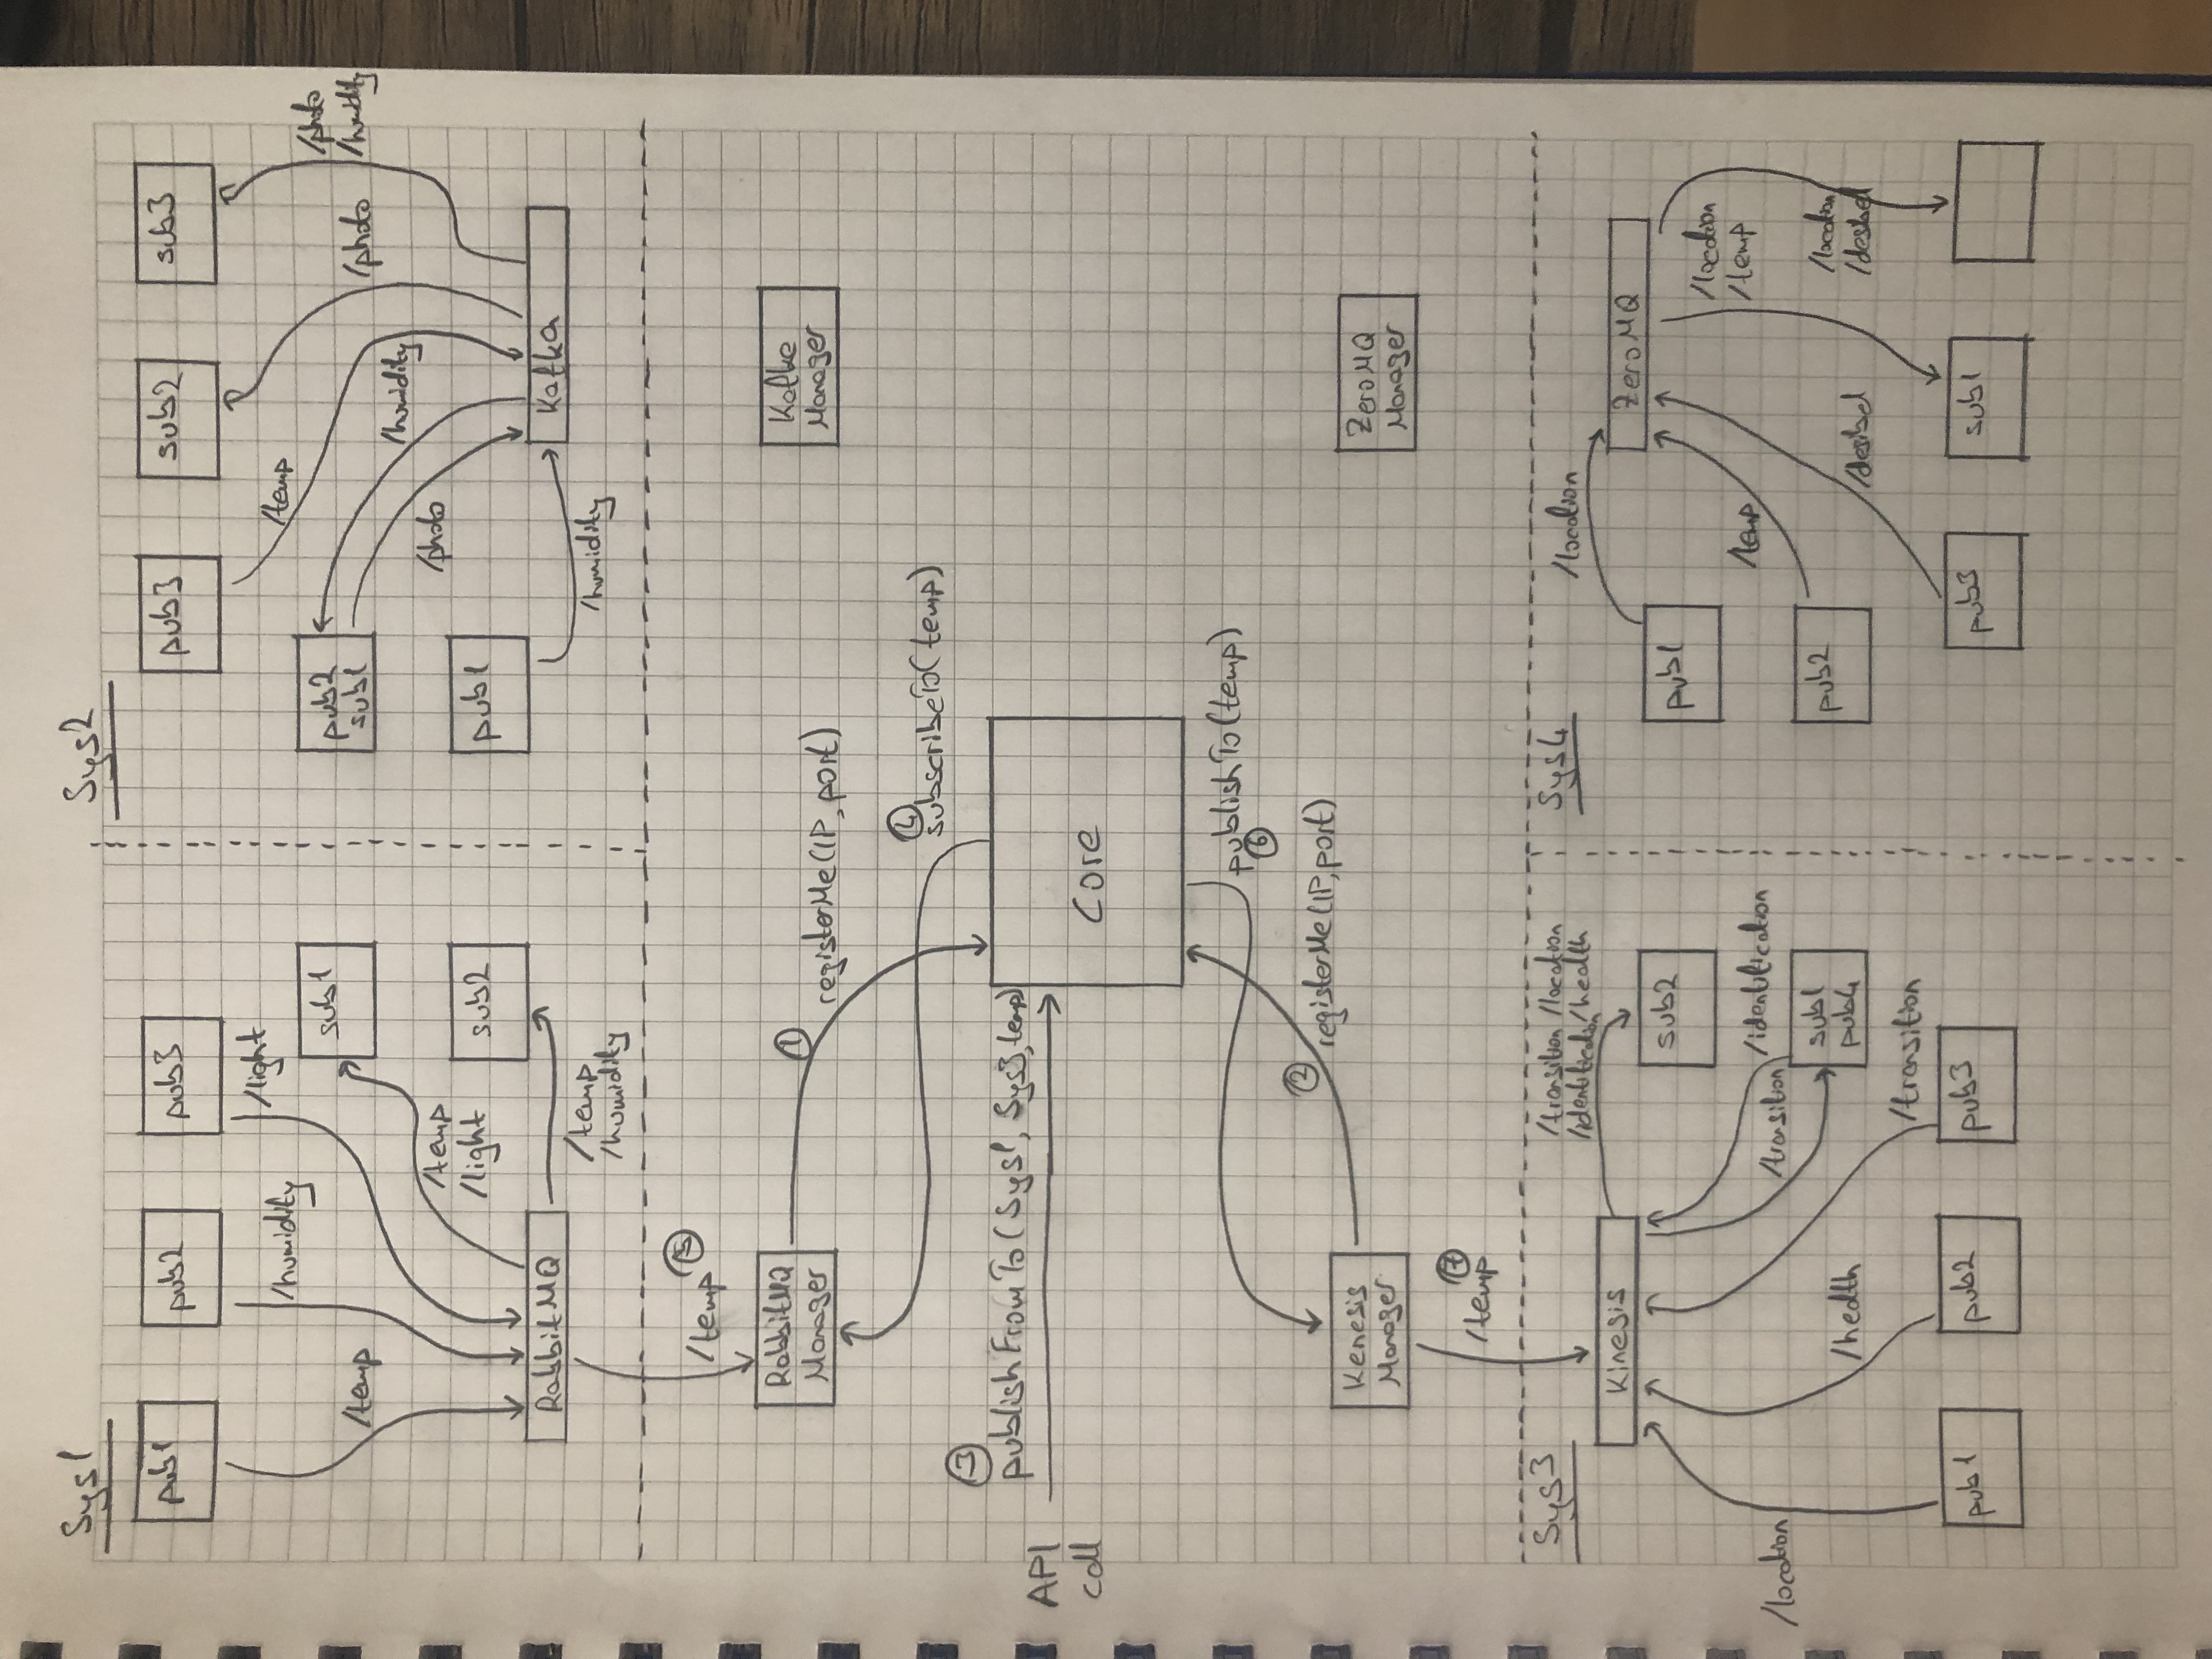 Sys1
pub1
pub2
pub3
/temp
/humidity
/light
sub1
/temp
/light
sub2
RabbitMQ
/temp
/humidity
Sys2
pub3
sub2
sub3
/temp
pub2
sub1
/photo
/humidity
/photo
/photo
/humidity
pub1
/humidity
Kafka
/temp
5
RabbitMQ
Manager
1
registerMe(IP, port)
Kafke
Manager
4
subscribeTo(temp)
3
publishFromTo(Sys1, Sys3, temp)
API
call
Core
publishTo(temp)
6
2
registerMe(IP, port)
Kenesis
Manager
ZeroMQ
Manager
7
/temp
Sys3
/transition /location
/identification /health
Kinesis
sub2
/location
/transition
/identification
sub1
pub4
/health
/transition
pub1
pub2
pub3
Sys4
/location
ZeroMQ
pub1
/temp
/location
/temp
pub2
/desibel
/location
/desibel
pub3
sub1